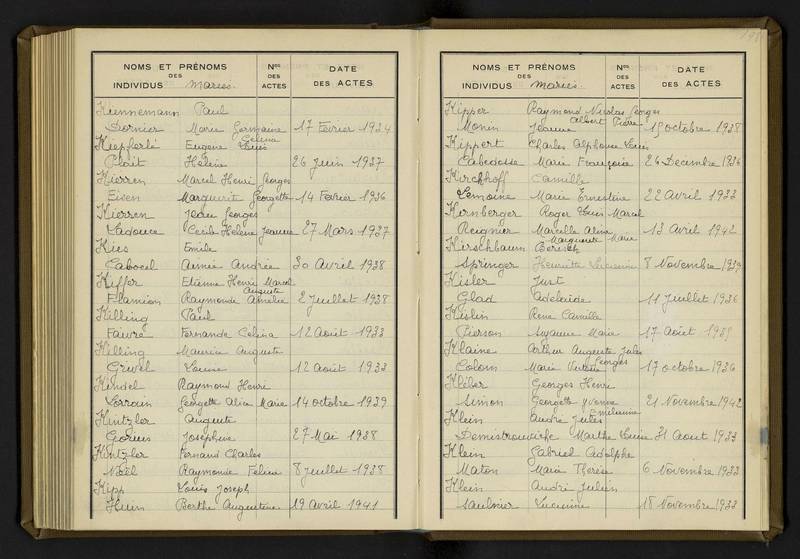 NOMS ET PRÉNOMS
DES
INDIVIDUS Mariés.
Nos
DES
ACTES
DATE
DES ACTES
Kiennemann Paul
Dornier Marie Germaine 17 Fevrier 1934
Célina
Kiepferlé Eugene Louis
Ploit Hélène 26 Juin 1937
Kierren Marcel Henri Georges
Eisen Marguerit Georgette 14 Fevrier 1936
Kierren Jean Georges
Ladouce Cecile Helene Jeanne 27 Mars 1937
Kies Emile
Cabocel Aimée Andrée 30 Avril 1938
Kiffer Etienne Henri Marcel
Auguste
Flamion Raymonde Amelie 2 Juillet 1938
Killing Paul
Faivre Fernande Celina 12 Aout 1933
Killing Maurice Auguste
Grivel Louise 12 Aout 1933
Kindel Raymond Henri
Lorrain Georgette Alice Marie 14 octobre 1939
Kintzler Auguste
Gorius Josephine 27 Mai 1938
Kintzler Fernand Charles
Noël Raymonde Felicie 8 Juillet 1938
Kipp Louis Joseph
Huin Berthe Augustine 19 Avril 1941
NOMS ET PRÉNOMS
DES
INDIVIDUS Mariés.
Nos
DES
ACTES
DATE
DES ACTES
Kipper Raymond Nicolas Georges
Albert Pierre
Monin Jeanne 15 octobre 1938
Kippert Charles Alphonse Louis
Cabedosse Marie Françoise 26 Decembre 1936
Kirchhoff Camille
Lemoine Marie Ernestine 22 Avril 1933
Kirnberger Roger Louis Marcel
Reignier Marcelle Aline 13 Avril 1942
Marguerite Marie
Kirschbaum Berisch
Springer Henriette Lucienne 8 Novembre 1939
Kisler Just
Glad Adelaide 11 Juillet 1936
Kislin René Camille
Pierson Suzanne Marie 17 Août 1939
Klaine Arthur Auguste Jules
Georges
Colom Marie 17 octobre 1936
Kléber Georges Henri
Simon Georgette Yvonne 21 Novembre 1942
Emilienne
Klein André Jules
Marthe Louise 31 Aout 1933
Klein Gabriel Adolphe
Maton Marie Therese 6 Novembre 1933
Klein André Julien
Saulnier Lucienne 18 Novembre 1933